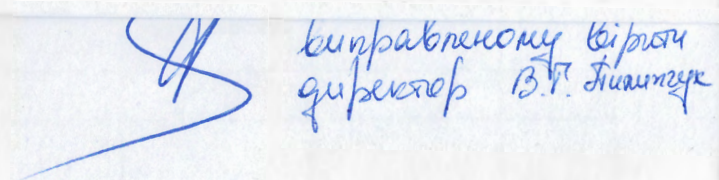 виправленому вірити
директор В.Г. Пилипчук